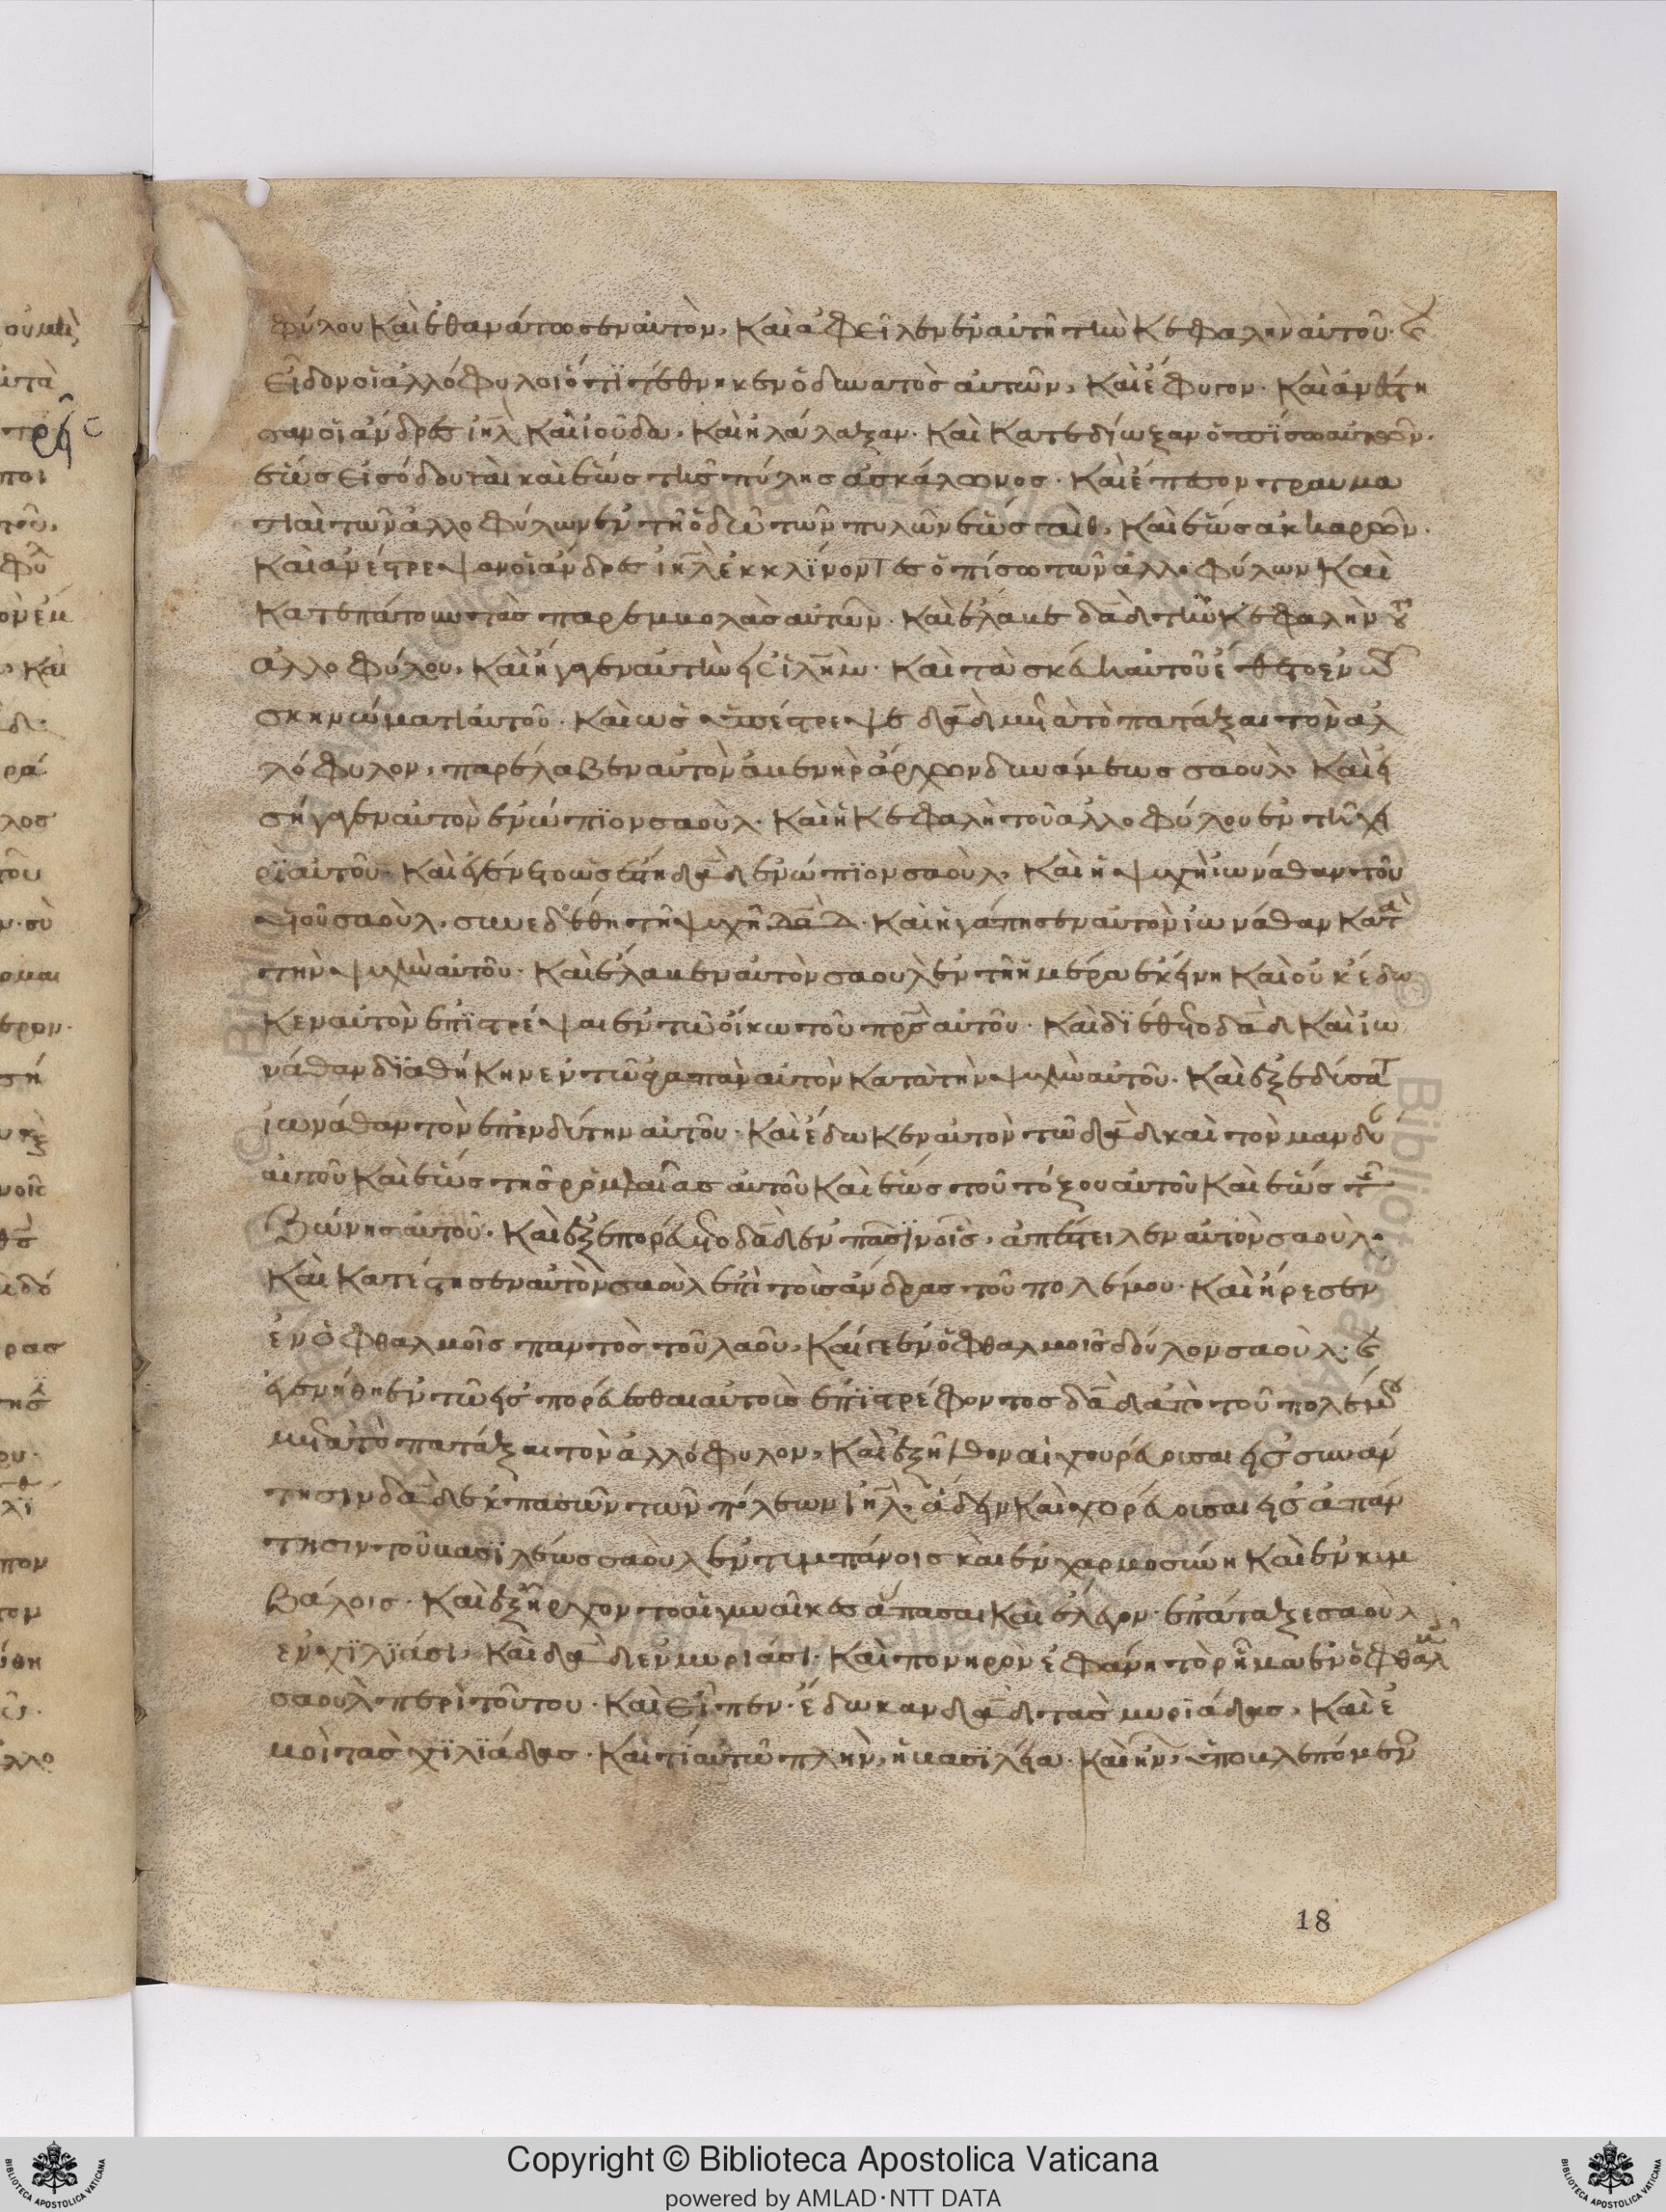 φύλου καὶ ἐθανάτωσεν αὐτὸν, καὶ ἀφεῖλεν ἐν αὐτῇ τὴν κεφαλὴν αὐτοῦ· ϛ
εἶδον οἱ ἀλλόφυλοι ὅτι τέθνηκεν ὁ δυνατὸς αὐτῶν, καὶ ἔφυγον· καὶ ἀνέστη
σαν οἱ ἄνδρες ιηλ καὶ ἰούδα, καὶ ηλάλαξαν· καὶ κατεδίωξαν ὀπίσω αὐτῶν·
ἕως εἰσόδου γαὶ καὶ ἕως τῆς πύλης ἀσκάλωνος· καὶ ἔπεσον τραυμα
τίαι τῶν ἀλλοφύλων ἐν τῇ ὁδῷ τῶν πυλῶν ἕως γαὶθ, καὶ ἕως ακκαρῶν·
καὶ ἀνέστρεψαν οἱ ἄνδρες ιηλ ἐκκλίνοντες ὀπίσω τῶν ἀλλοφύλων καὶ
κατεπάτουν τὰς παρεμβολὰς αὐτῶν· καὶ ἔλαβε δαδ τὴν κεφαλὴν τοῦ
ἀλλοφύλου, καὶ ἤγαγεν αὐτὴν εἰς ἱλημ· καὶ τὰ σκεύη αὐτοῦ ἔθετο ἐν τῷ
σκηνώματι αὐτοῦ· καὶ ὡς ὑπέστρεψε δαδ μετὰ τὸ πατάξαι τὸν ἀλ
λόφυλον, παρέλαβεν αὐτὸν ἀβενὴρ ἄρχων δυνάμεως σαούλ, καὶ εἰ
σήγαγεν αὐτὸν ἐνώπιον σαοὺλ· καὶ ἡ κεφαλὴ τοῦ ἀλλοφύλου ἐν τῇ χει
ρὶ αὐτοῦ· καὶ ἐγένετο ὡς ἔστη δαδ ἐνώπιον σαοὺλ, καὶ ἡ ψυχὴ ἰωνάθαν τοῦ
υἱοῦ σαοὺλ, συνεδέθη τῇ ψυχῇ δαδ· καὶ ἠγάπησεν αὐτὸν ἰωνάθαν κατὰ
τὴν ψυχὴν αὐτοῦ· καὶ ἔλαβεν αὐτὸν σαοὺλ ἐν τῇ ἡμέρα ἐκείνη καὶ οὐκ ἔδω
κεν αὐτὸν ἐπιστρέψαι ἐν τῷ οἴκω τοῦ πρς αὐτοῦ· καὶ διέθετο δαδ καὶ ἰω
νάθαν διαθήκην ἐν τῷ ἀγαπᾶν αὐτὸν κατὰ τὴν ψυχὴν αὐτοῦ· καὶ ἐξεδύσατ
ἰωνάθαν τὸν ἐπενδύτην αὐτοῦ· καὶ ἔδωκεν αὐτὸν τῷ δαδ καὶ τὸν μανδύ
αὐτοῦ καὶ ἕως τῆς ρομφαίας αὐτοῦ καὶ ἕως τοῦ τόξου αὐτοῦ καὶ ἕως τῆς
ζώνης αὐτοῦ· καὶ ἐξεπορεύετο δαδ ἐν πᾶσιν οἷς, ἀπέστειλεν αὐτὸν σαοὺλ·
καὶ κατέστησεν αὐτὸν σαοὺλ ἐπὶ τοὺς ἄνδρας τοῦ πολέμου· καὶ ἤρεσεν
ἐν ὀφθαλμοῖς παντὸς τοῦ λαοῦ, καί γε ἐν ὀφθαλμοῖς δούλων σαοὺλ· ϛ
ἐγενήθη ἐν τῷ εἰσπορεύεσθαι αὐτοὺς ἐπιστρέφοντος δαδ ἀπὸ τοῦ πολέμου
μετὰ τὸ πατάξαι τὸν ἀλλόφυλον, καὶ ἐξῆλθον αἱ χορεύουσαι εἰς συνάν
τησιν δαδ ἐκ πασῶν τῶν πόλεων ιηλ ἄδειν καὶ χορεύουσαι εἰς ἀπάν
τησιν τοῦ βασιλέως σαοὺλ ἐν τυμπάνοις καὶ ἐν χαρμοσύνη καὶ ἐν κυμ
βάλοις· καὶ ἐξήρχοντο αἱ γυναῖκες ἅπασαι καὶ ἔλεγον· ἐπάταξε σαοὺλ
ἐν χιλιάσι, καὶ δαδ ἐν μυριάσι· καὶ πονηρὸν ἐφάνη τὸ ρῆμα ἐν ὀφθαλμ
σαοὺλ περὶ τούτου· καὶ εἶπεν· ἔδωκαν δαδ τὰς μυριάδας, καὶ ἐ
μοὶ τὰς χιλιάδας· καὶ τί αὐτῷ πλὴν, ἡ βασιλεία· καὶ ἦν, ὑποβλεπόμενος
18
Copyright © Biblioteca Apostolica Vaticana
powered by AMLAD·NTT DATA